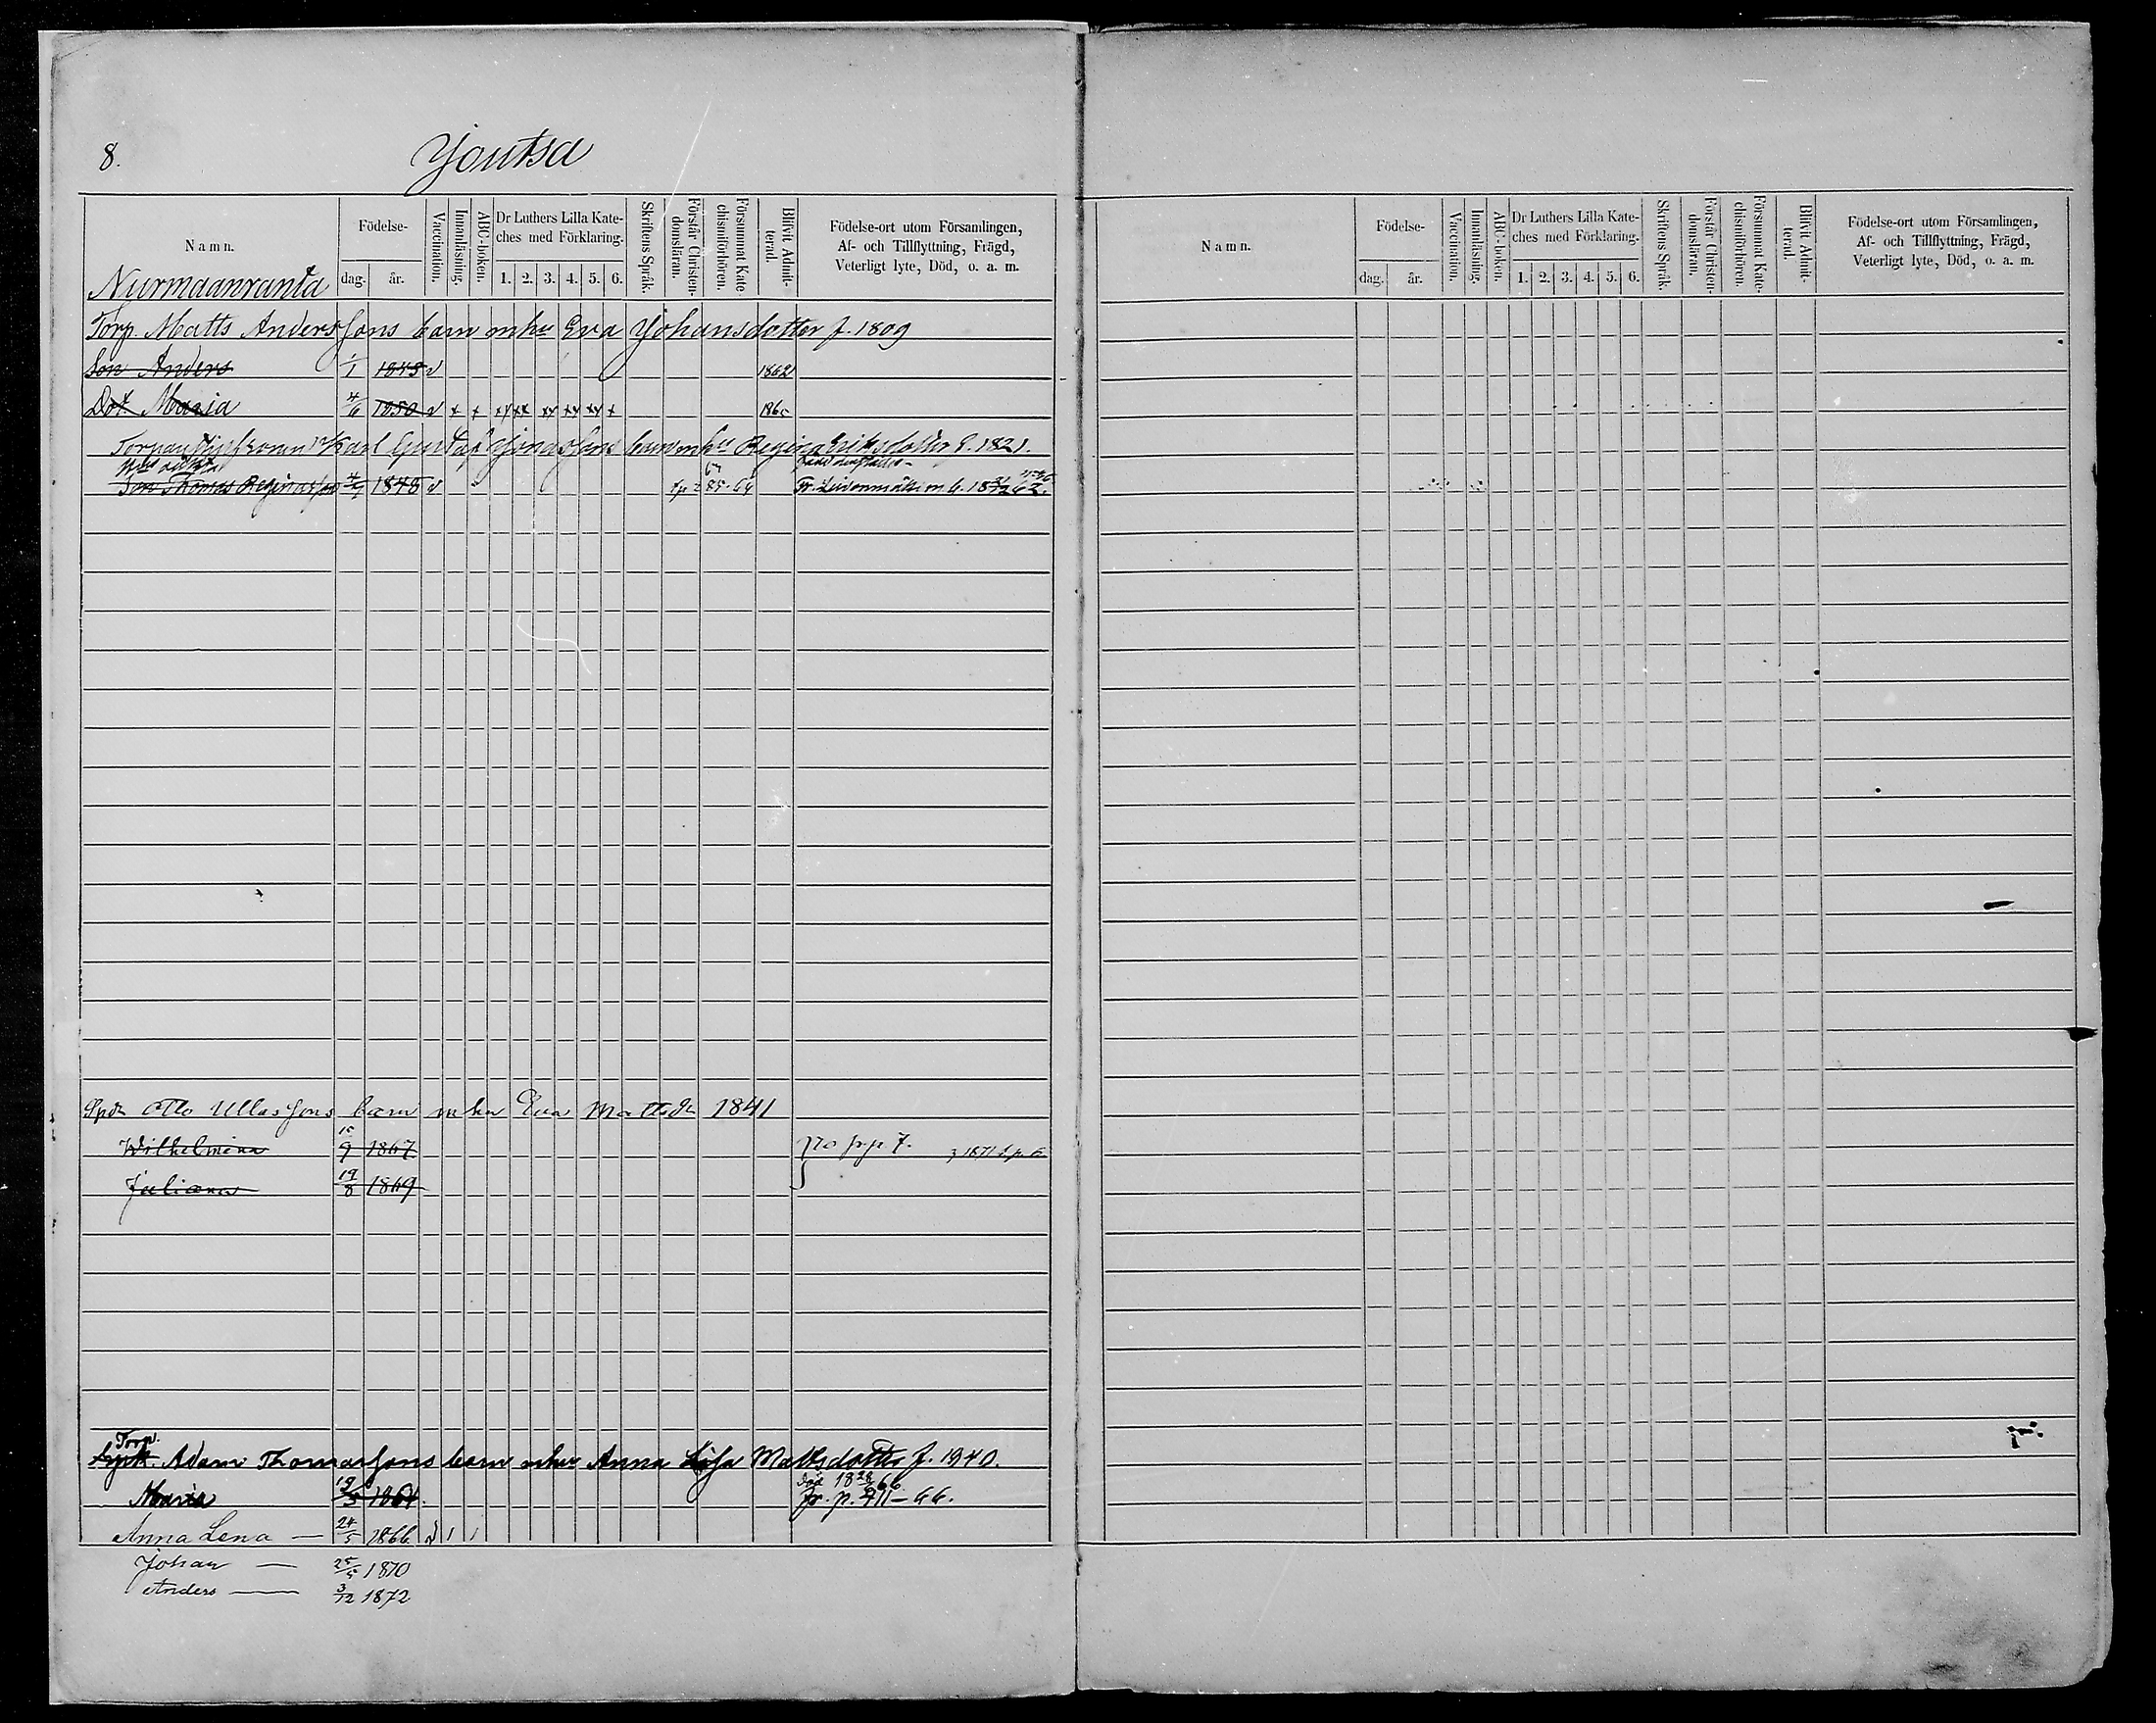 8. Joutsa
Namn. Födelse- dag. år. Vaccination. Innanläsning. ABC-boken. Dr Luthers Lilla Kateches med Förklaring. 1. 2. 3. 4. 5. 6. Skriftens Språk. Förstår Christendomsläran. Försummat Katechismiförhören. Blivit Admitterad. Födelse-ort utom Församlingen, Af- och Tillflyttning, Frägd, Veterligt lyte, Död, o. a. m.
Nurmaanranta
Torp. Matts Anderssons barn m hu Eva Johansdotter f. 1809
Son Anders 1/1 1845 v 1862
Dot Maria 4/6 1850 v
Karl Gustaf barn m hu Regina Eriksdotter f. 1821.
Son Thomas 1848 v
Otto Ullassons barn m hu Eva Mattsdr 1841
Wilhelmina 15/9 1867
Juliana 19/8 1869
Torp.
Adam Thomassons barn m hu Anna Lisa Mattsdotter f. 1940.
död 18 28/6 66
Maria 19/3 1864. fr. p. 911-66.
Anna Lena — 24/5 1866 v
Johan — 25/5 1870
Anders — 3/12 1872
Namn. Födelse- dag. år. Vaccination. Innanläsning. ABC-boken. Dr Luthers Lilla Kateches med Förklaring. 1. 2. 3. 4. 5. 6. Skriftens Språk. Förstår Christendomsläran. Försummat Katechismiförhören. Blivit Admitterad. Födelse-ort utom Församlingen, Af- och Tillflyttning, Frägd, Veterligt lyte, Död, o. a. m.